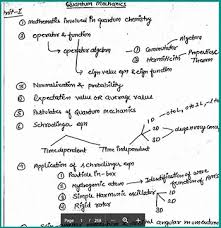 Quantum Mechanics
Unit-I
① Mathematics Involved in quantum chemistry
② operator & function
operator algebra
Algebra
① Commutator
② Hermiticity
Properties
Theorem
eigen value eqn & eign function
③ Normalisation & probability
④ Expectation value or average value
⑤ Postulates of Quantum mechanics
⑥ Schrodinger eqn
1D
2D
3D
degeneracy
Time dependent Time independent
Application of schrodinger eqn
① Particle in-box
② Hydrogenic atom
Identification of wave function of
③ Simple Harmonic oscillator
1D
2D
3D
④ Rigid rotor
Page 1 / 258
angular momentum